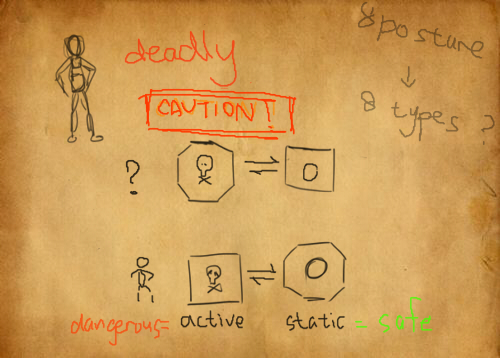 deadly
CAUTION!
8 posture
↓
8 types ?
?
dangerous = active static = safe